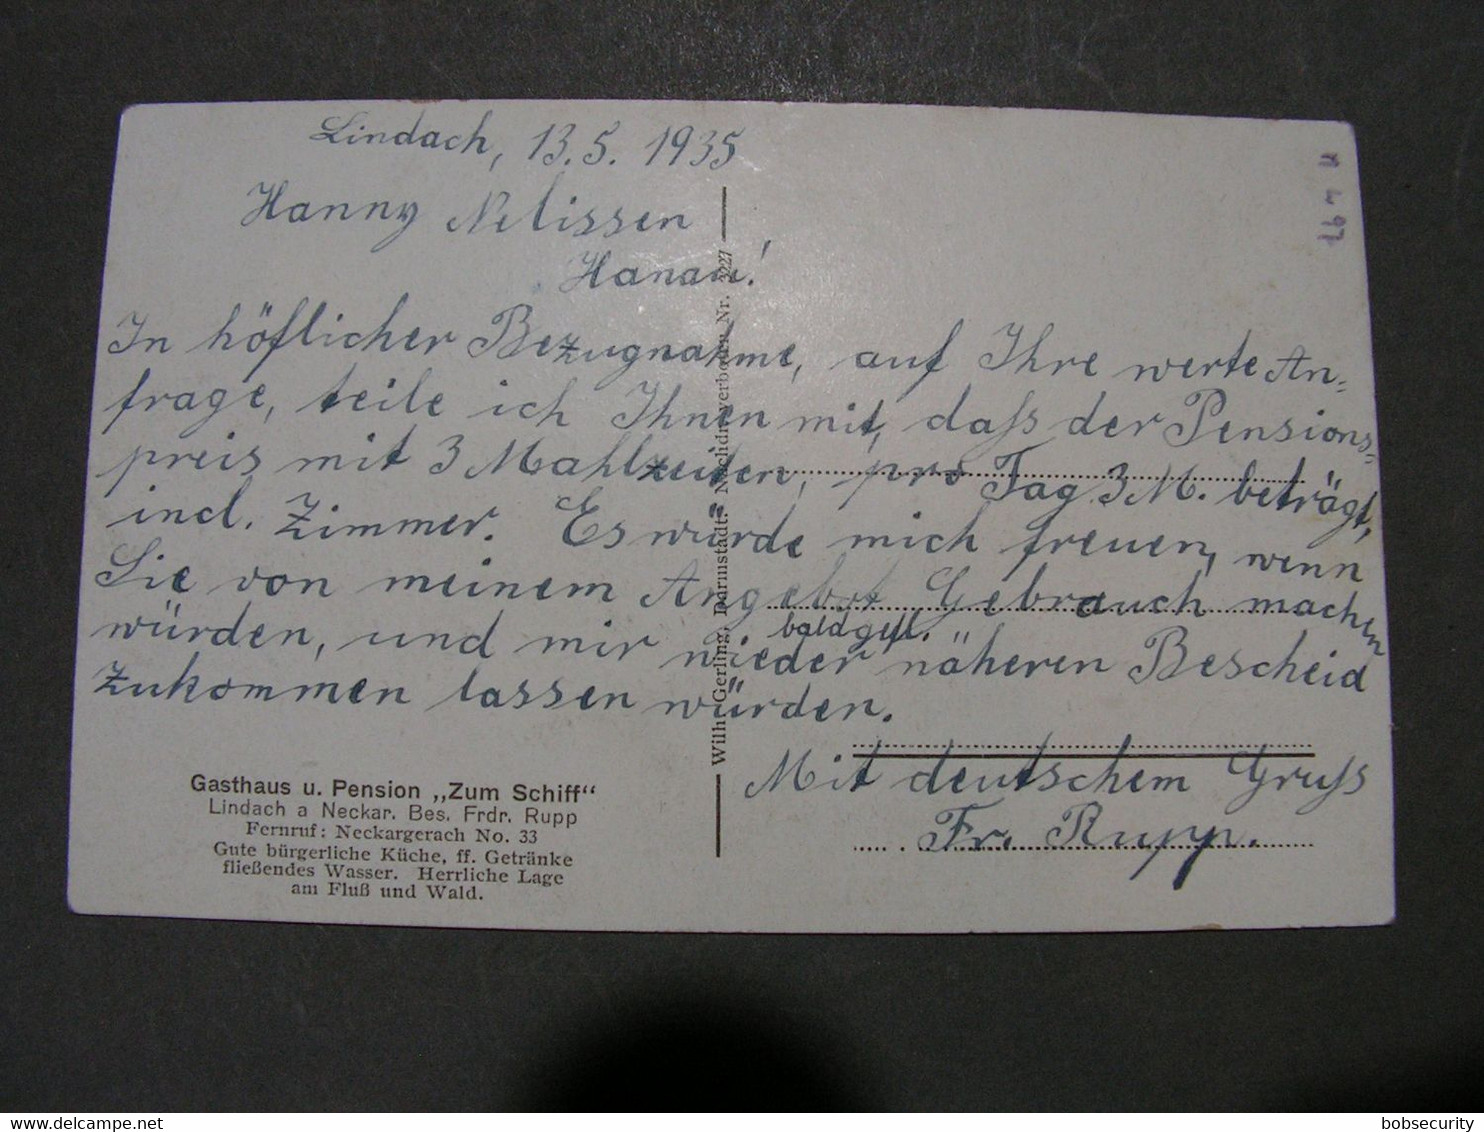 Lindach, 13.5. 1935
Hanny Nelissen
Hanau!
In höflicher Bezugnahme, auf Ihre werte An-
frage, teile ich Ihnen mit, daſs der Pensions-
preis mit 3 Mahlzeiten, pro Tag 3 M. beträgt,
incl. Zimmer. Es würde mich freuen, wenn
Sie von meinem Angebot Gebrauch machen
würden, und mir baldgefl. wieder näheren Bescheid
zukommen lassen würden.
Mit deutschem Gruſs
Fr. Rupp.
Gasthaus u. Pension „Zum Schiff“
Lindach a Neckar. Bes. Frdr. Rupp
Fernruf: Neckargerach No. 33
Gute bürgerliche Küche, ff. Getränke
fließendes Wasser. Herrliche Lage
am Fluß und Wald.
Wilh. Gerling, Darmstadt. Nachdr. verboten Nr. 3227
bobsecurity